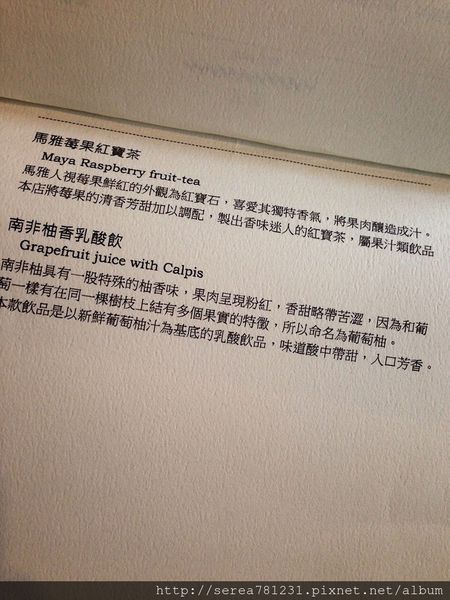 馬雅莓果紅寶茶
Maya Raspberry fruit-tea
馬雅人視莓果鮮紅的外觀為紅寶石，喜愛其獨特香氣，將果肉釀造成汁。
本店將莓果的清香芳甜加以調配，製出香味迷人的紅寶茶，屬果汁類飲品
南非柚香乳酸飲
Grapefruit juice with Calpis
南非柚具有一股特殊的柚香味，果肉呈現粉紅，香甜略帶苦澀，因為和葡
萄一樣有在同一棵樹枝上結有多個果實的特徵，所以命名為葡萄柚。
本款飲品是以新鮮葡萄柚汁為基底的乳酸飲品，味道酸中帶甜，入口芳香。
http://serea781231.pixnet.net/album